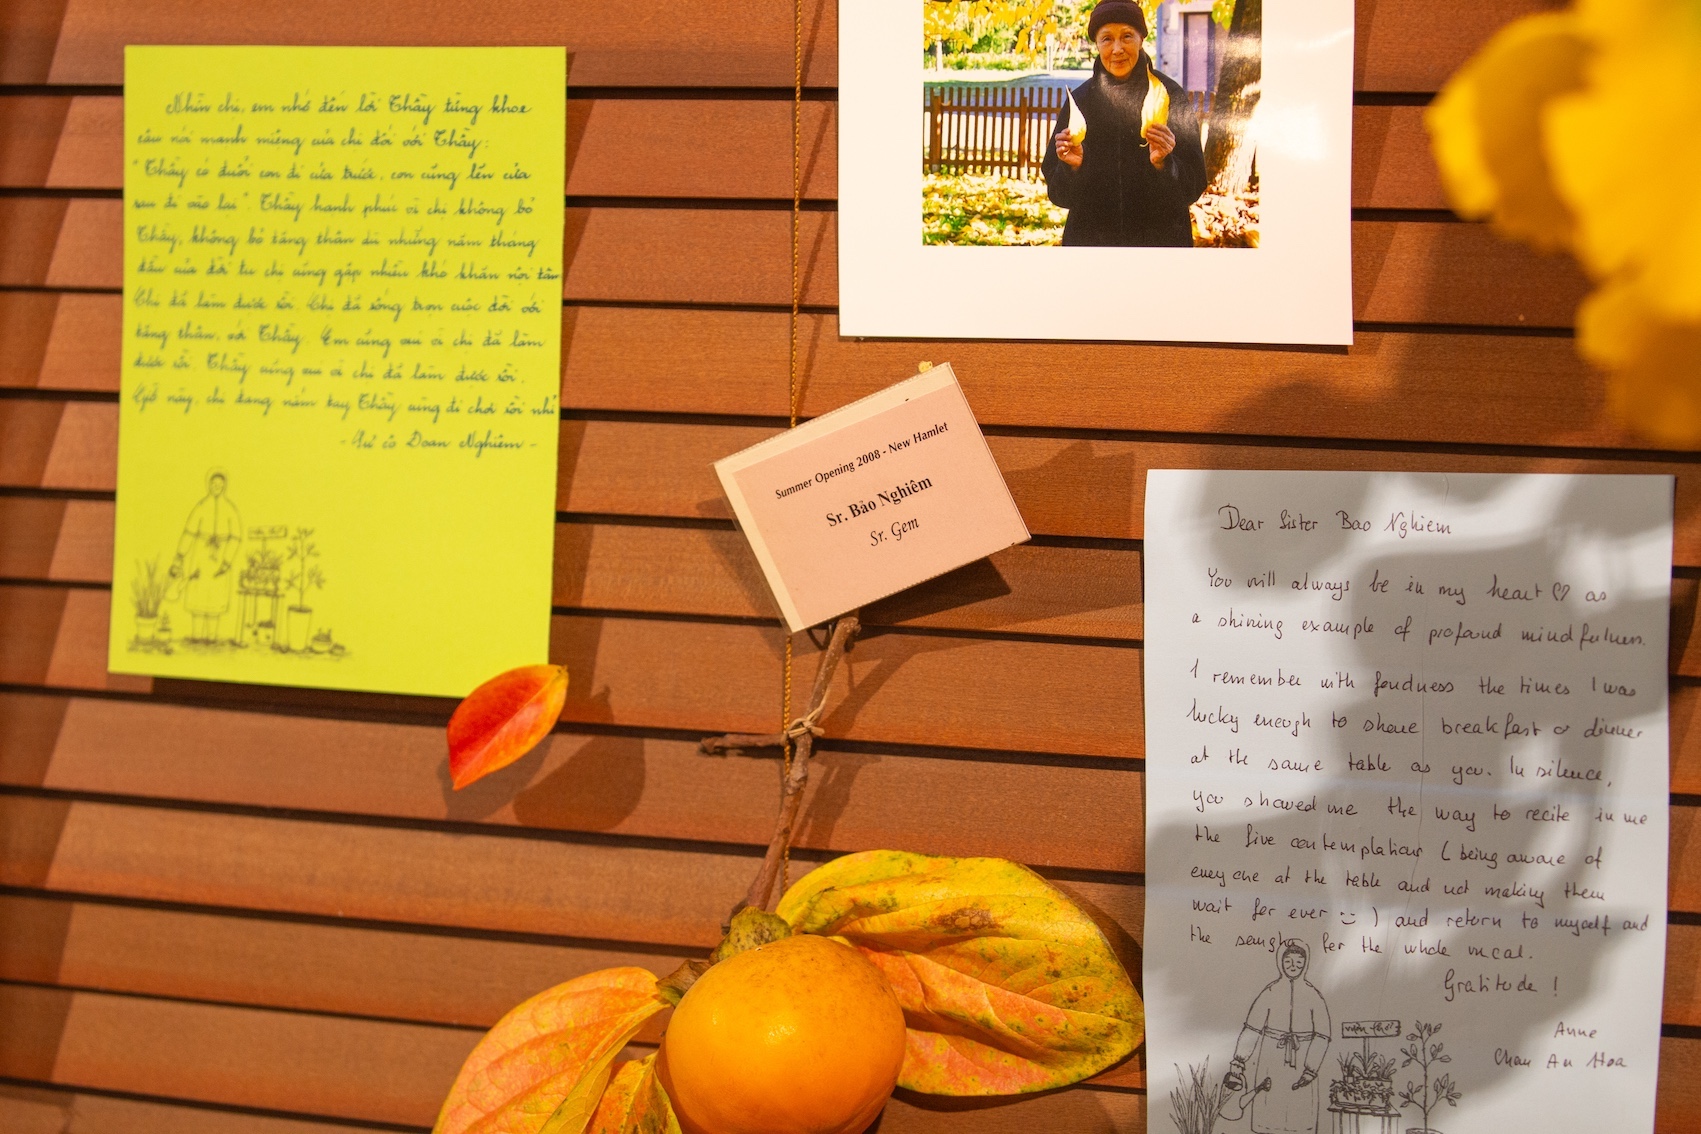 Nhìn chị, em nhớ đến lời Thầy từng khoe
câu nói mạnh miệng của chị đối với Thầy:
"Thầy có đuổi con đi cửa trước, con cũng lẻn cửa
sau đi vào lại". Thầy hạnh phúc vì chị không bỏ
Thầy, không bỏ tăng thân dù những năm tháng
đầu của đời tu chị cũng gặp nhiều khó khăn nội tâm
Chị đã làm được rồi. Chị đã sống trọn cuộc đời với
tăng thân, với Thầy. Em cũng vui vì chị đã làm
được rồi. Thầy cũng vui vì chị đã làm được rồi.
Giờ này, chị đang nắm tay Thầy cùng đi chơi rồi nhỉ
- Sư cô Đoan Nghiêm -
Summer Opening 2008 - New Hamlet
Sr. Bảo Nghiêm
Sr. Gem
Dear Sister Bao Nghiem
You will always be in my heart ♡ as
a shining example of profound mindfulness.
I remember with fondness the times I was
lucky enough to share breakfast or dinner
at the same table as you. In silence,
you showed me the way to recite in me
the five contemplations (being aware of
every one at the table and not making them
wait for ever :-) ) and return to myself and
the sangha for the whole meal.
Gratitude !
Anne
Chan An Hoa
vườn thơ